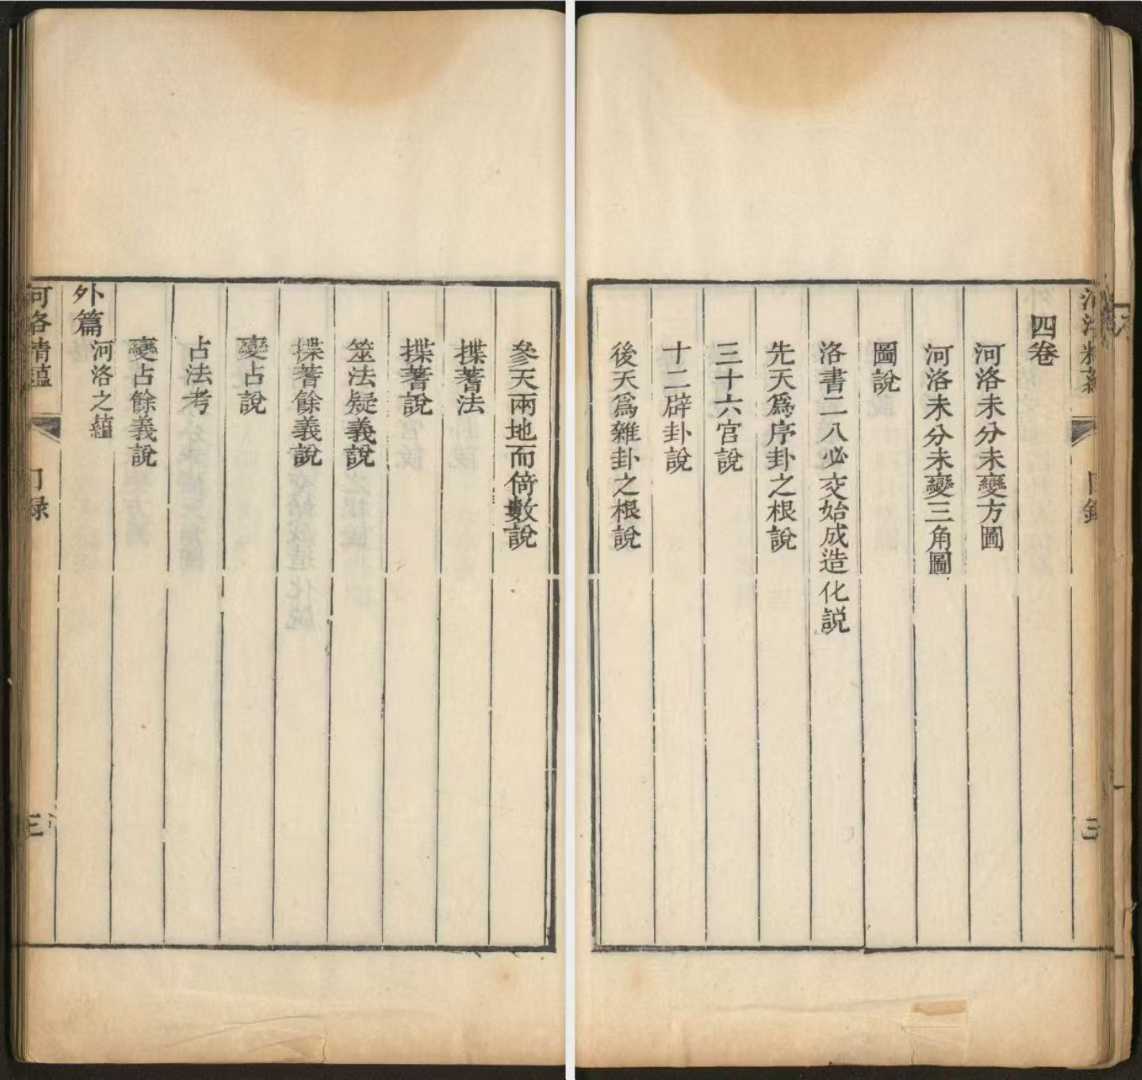 河洛精蘊 目錄 三
四卷
河洛未分未變方圖
河洛未分未變三角圖
圖說
洛書二八必交始成造化說
先天爲序卦之根說
三十六宮說
十二辟卦說
後天爲雜卦之根說
參天兩地而倚數說
揲蓍法
揲蓍說
筮法疑義說
揲蓍餘義說
變占說
占法考
變占餘義說
外篇 河洛之蘊
河洛精蘊 目録 三